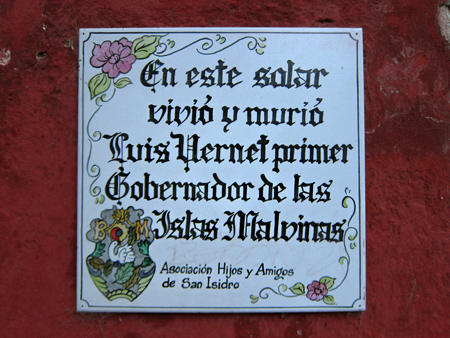 En este solar
vivió y murió
Luis Vernet primer
Gobernador de las
Islas Malvinas
B M
Asociación Hijos y Amigos
de San Isidro